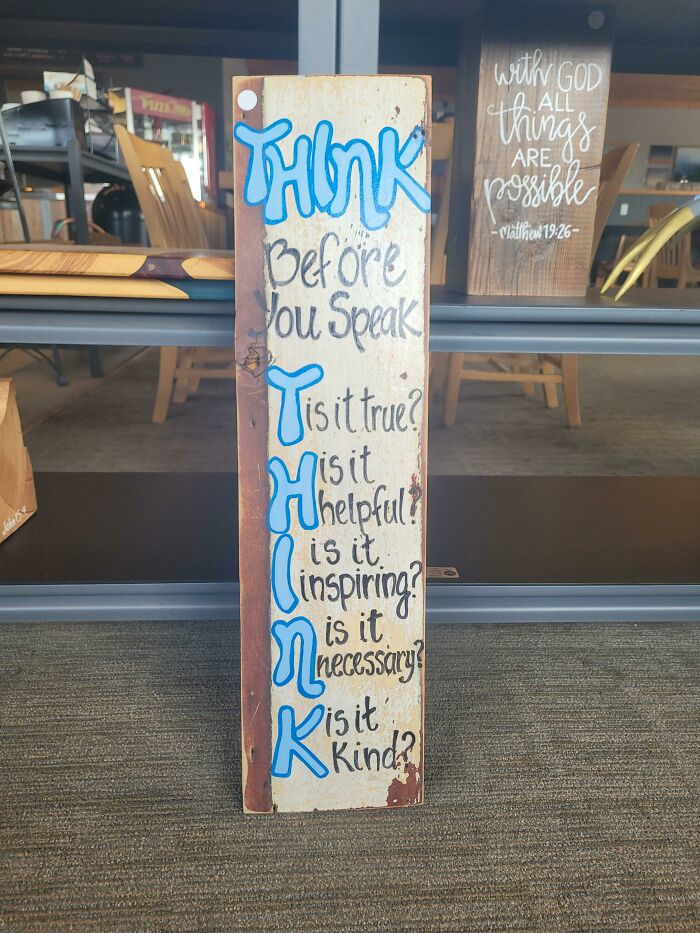 THInK
Before
You Speak
T is it true?
H is it
helpful?
I is it
inspiring?
n is it
necessary?
K is it
Kind?
with GOD
ALL
things
ARE
possible
-Matthew 19:26-
PIZZA